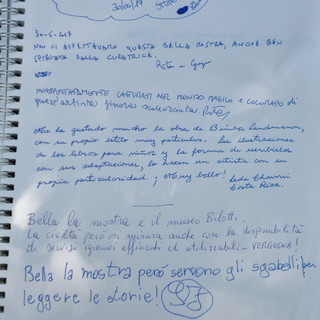 30/06/17
30-6-2017
NON CI ASPETTAVAMO QUESTA BELLA MOSTRA, ANCOR BEN
SPIEGATA DALLA CURATRICE.
INASPETTATAMENTE CATTURATI NEL MONDO MAGICO e COLORATO di
quest'artista finora sconosciuta.
Me ha gustado mucho la obra de Bimba Landmann,
con su propio estilo muy particular. Las ilustraciones
de los libros para niños y la forma de escribirlos
con sus adaptaciones, lo hacen un artista con su
propia particularidad. ¡ Está muy bello!
Costa Rica.
Bella la mostra e il museo Bilotti.
La civiltà però si misura anche con la disponibilità
di servizi igienici efficienti ed utilizzabili - VERGOGNA!
Bella la mostra però servono gli sgabelli per
leggere le storie!